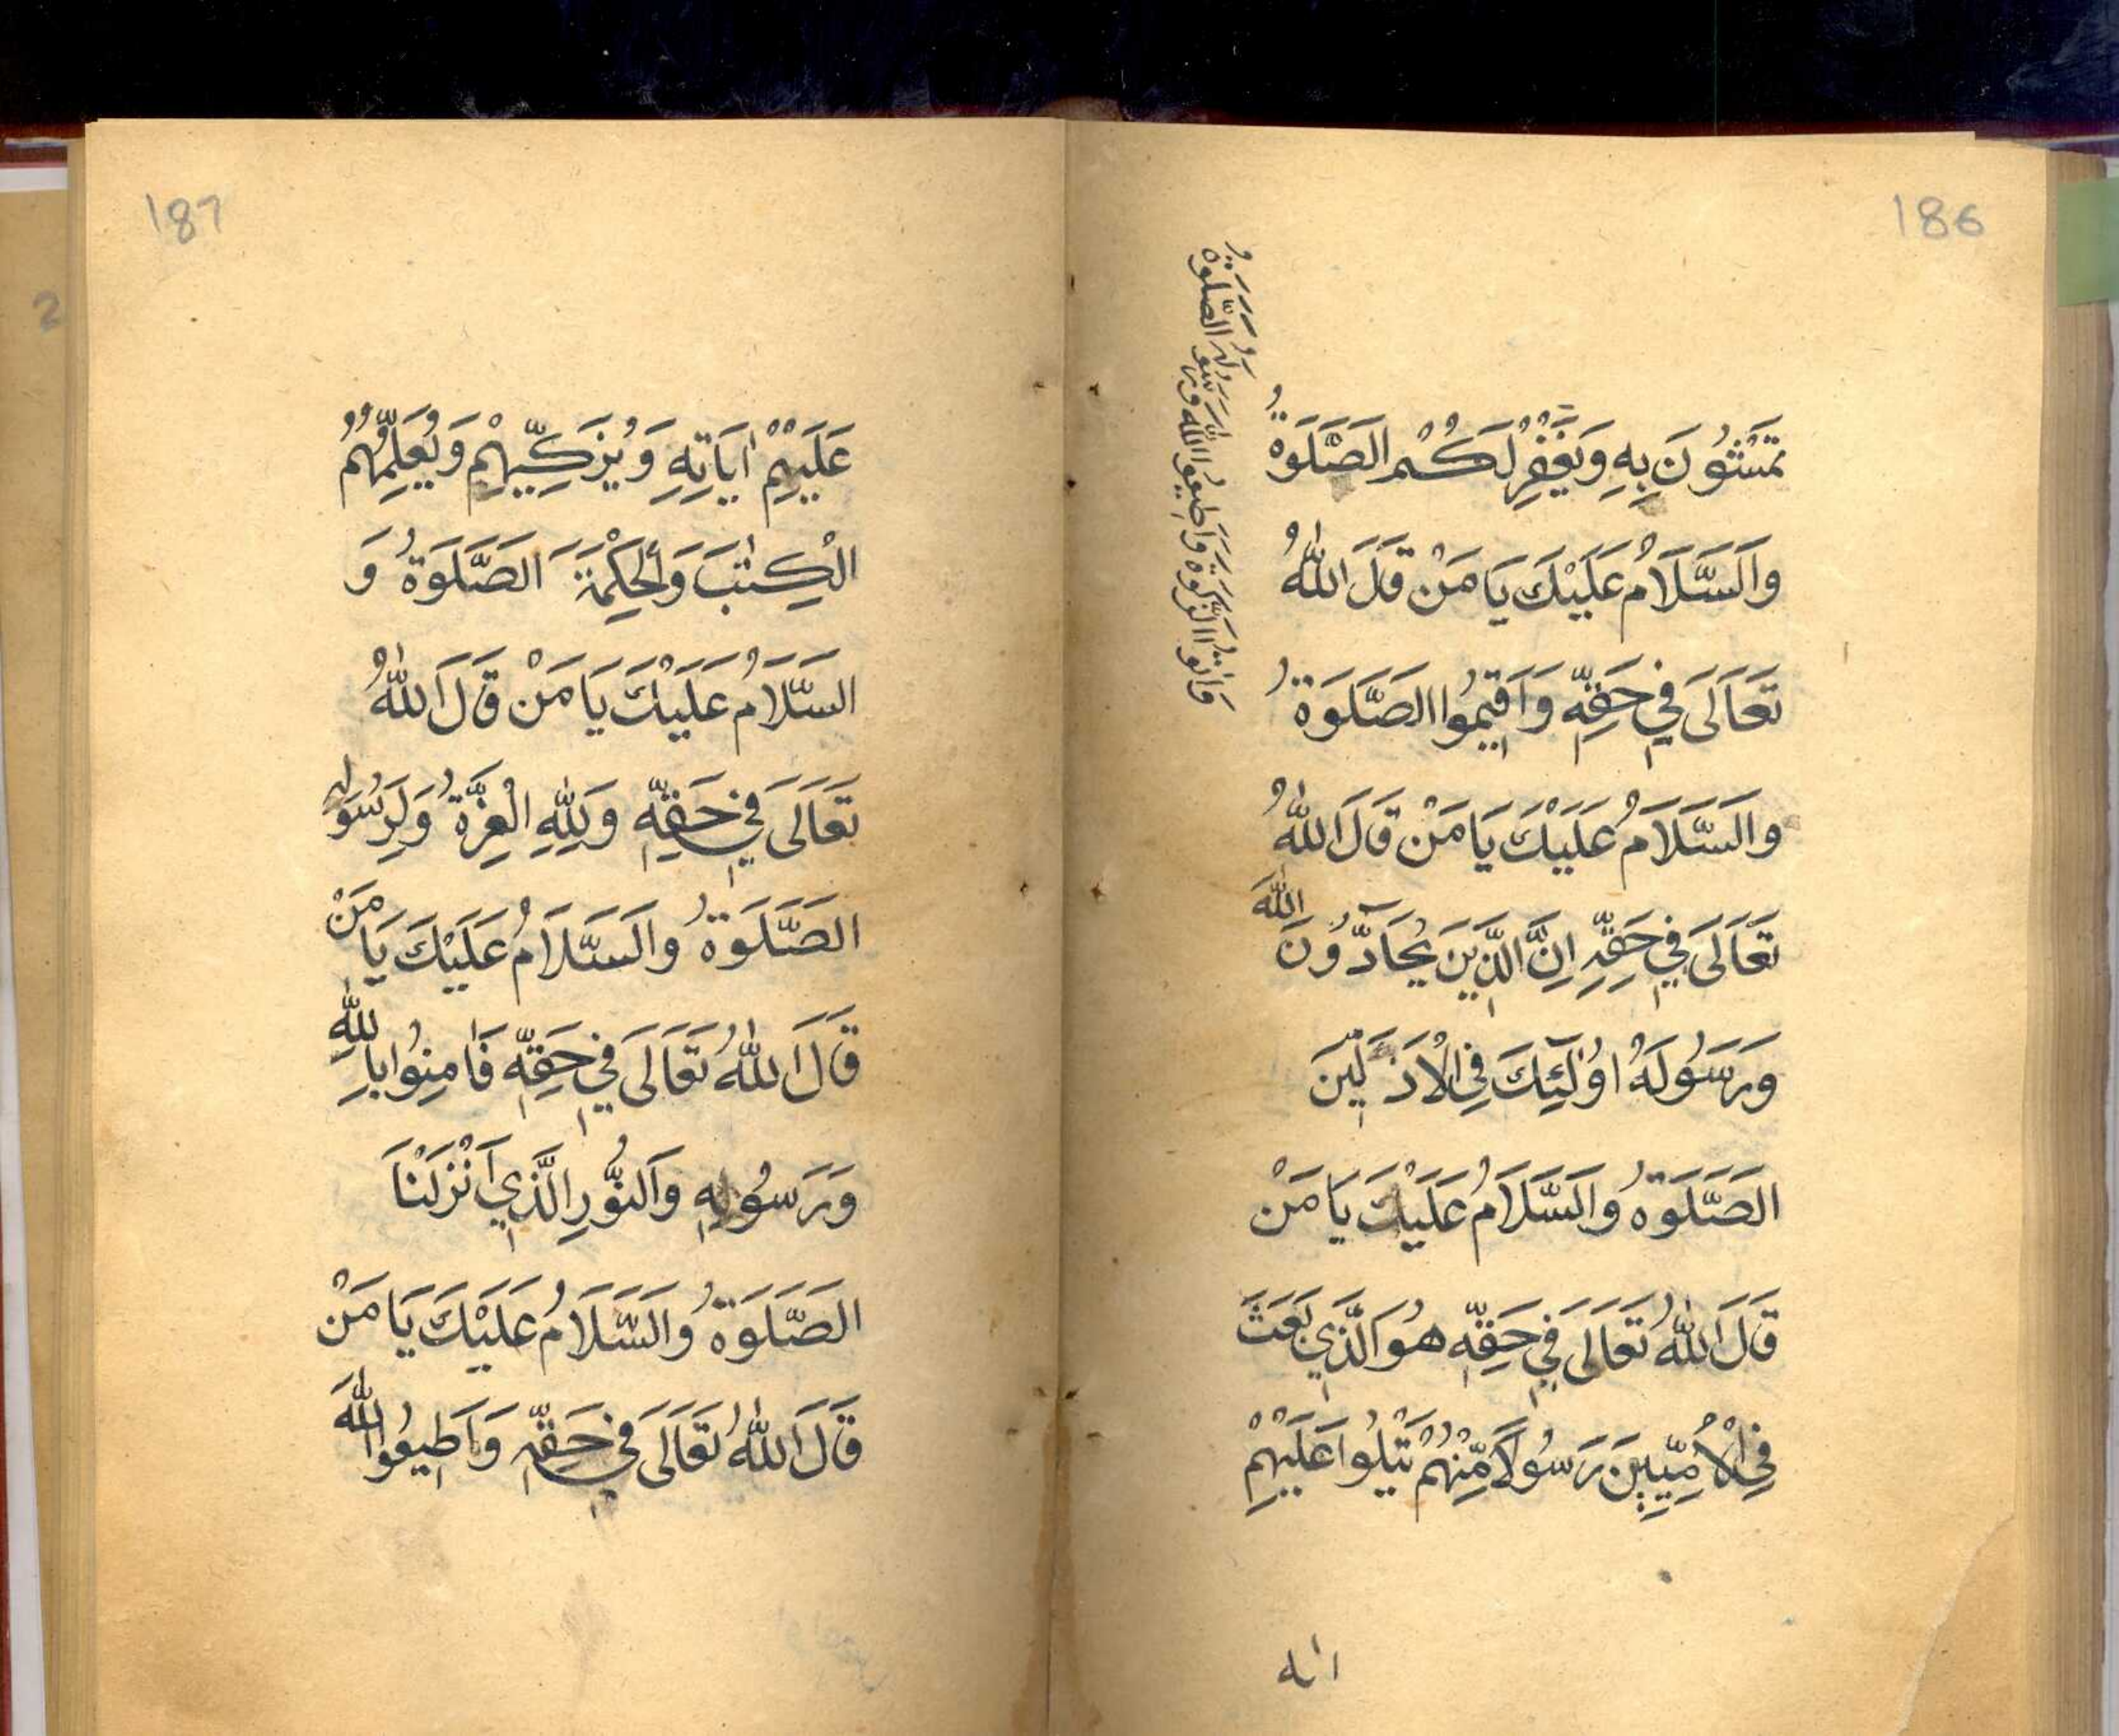 186
تَمْشُونَ بِهِ وَيَغْفِرْ لَكُمْ الصَّلَوةُ
وَالسَّلَامُ عَلَيْكَ يَا مَنْ قَالَ اللهُ
تَعَالَى فِي حَقِّهِ وَاَقِيمُوا الصَّلَوةَ
وَاٰتُوا الزَّكَوةَ وَاَطِيعُوا اللهَ وَرَسُولَهُ الصَّلَوةُ
وَالسَّلَامُ عَلَيْكَ يَا مَنْ قَالَ اللهُ
تَعَالَى فِي حَقِّهِ اِنَّ الَّذِينَ يُحَادُّونَ اللهَ
وَرَسُولَهُ اُولٰئِكَ فِي الْاَذَلِّينَ
الصَّلَوةُ وَالسَّلَامُ عَلَيْكَ يَا مَنْ
قَالَ اللهُ تَعَالَى فِي حَقِّهِ هُوَ الَّذِي بَعَثَ
فِي الْاُمِّيِّينَ رَسُولًا مِّنْهُمْ يَتْلُوا عَلَيْهِمْ
187
عَلَيْهِمْ اٰيَاتِهِ وَيُزَكِّيهِمْ وَيُعَلِّمُهُمُ
الْكِتٰبَ وَالْحِكْمَةَ الصَّلَوةُ وَ
السَّلَامُ عَلَيْكَ يَا مَنْ قَالَ اللهُ
تَعَالَى فِي حَقِّهِ وَلِلّٰهِ الْعِزَّةُ وَلِرَسُولِهِ
الصَّلَوةُ وَالسَّلَامُ عَلَيْكَ يَا مَنْ
قَالَ اللهُ تَعَالَى فِي حَقِّهِ فَاٰمِنُوا بِاللهِ
وَرَسُولِهِ وَالنُّورِ الَّذِي اَنْزَلْنَا
الصَّلَوةُ وَالسَّلَامُ عَلَيْكَ يَا مَنْ
قَالَ اللهُ تَعَالَى فِي حَقِّهِ وَاَطِيعُوا اللهَ